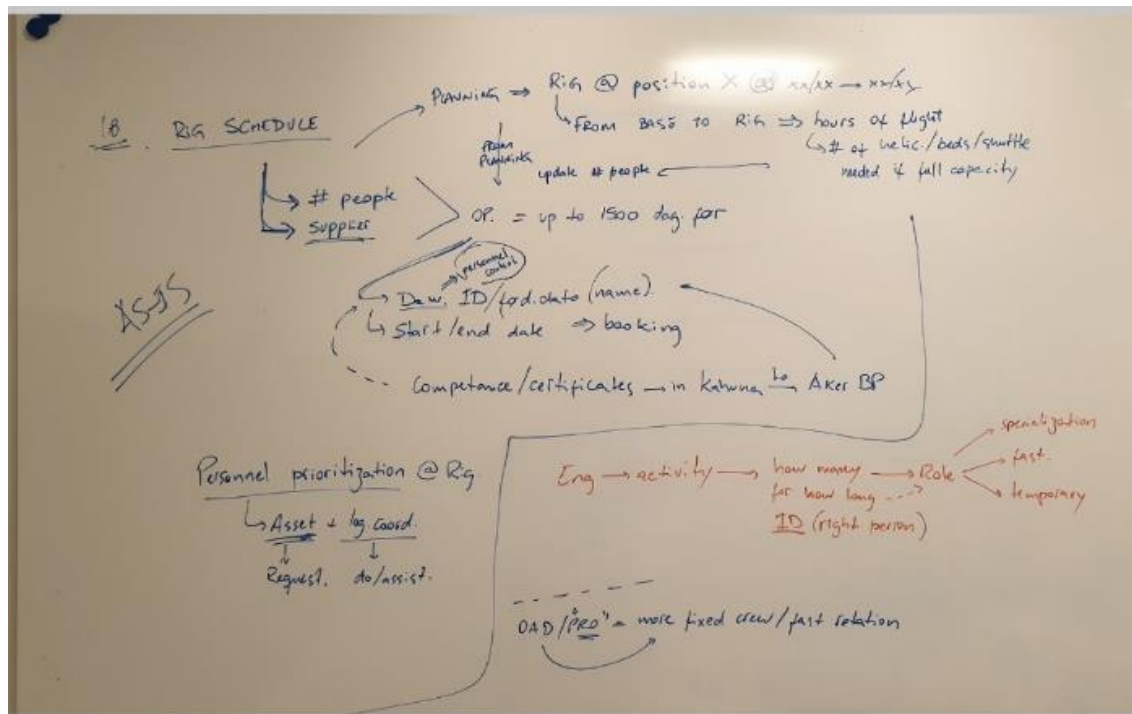 1B. RIG SCHEDULE
→ # people
→ supplier
PLANNING ⇒ RIG @ position X @ xx/xx → xx/xx
FROM BASE TO RIG ⇒ hours of flight
↳ # of helic./beds/shuttle
needed if full capacity
FROM
PLANNING
update # people
OP. = up to 1500 dag. for
⇒ personnel
control
↳ Daw. ID/fød.dato (name)
↳ Start/end date ⇒ booking
Competance/certificates → in Kahuna to → Aker BP
AS-IS
Personnel prioritization @ Rig
↳ Asset + log coord.
Request. do/assist.
Eng → activity → how many → Role
for how long
ID (right person)
specialization
fast.
temporary
DAD/"PRO" - more fixed crew/fast rotation